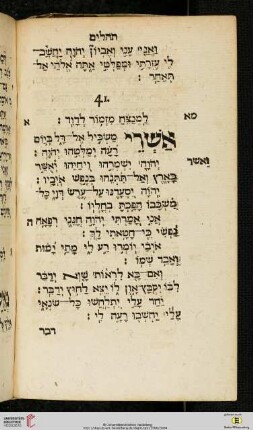 תהלים
וַאֲנִי עָנִי וְאֶבְיוֹן יְהוָה יַחֲשָׁב־
לִי עֶזְרָתִי וּמְפַלְטִי אַתָּה אֱלֹהַי אַל־
תְּאַחַר׃
41.
מא
לַמְנַצֵּחַ מִזְמוֹר לְדָוִד׃
א
אַשְׁרֵי מַשְׂכִּיל אֶל־דָּל בְּיוֹם
רָעָה יְמַלְּטֵהוּ יְהוָה׃
יְהוָה יִשְׁמְרֵהוּ וִיחַיֵּהוּ יְאֻשַּׁר
ואשר
בָּאָרֶץ וְאַל־תִּתְּנֵהוּ בְּנֶפֶשׁ אֹיְבָיו׃
יְהוָה יִסְעָדֶנּוּ עַל־עֶרֶשׂ דְּוָי כָּל־
מִשְׁכָּבוֹ הָפַכְתָּ בְחָלְיוֹ׃
אֲנִי אָמַרְתִּי יְהוָה חָנֵּנִי רְפָאָה
ה
נַפְשִׁי כִּי־חָטָאתִי לָךְ׃
אוֹיְבַי יֹאמְרוּ רַע לִי מָתַי יָמוּת
וְאָבַד שְׁמוֹ׃
וְאִם־בָּא לִרְאוֹת שָׁוְא יְדַבֵּר
לִבּוֹ יִקְבָּץ־אָוֶן לוֹ יֵצֵא לַחוּץ יְדַבֵּר׃
יַחַד עָלַי יִתְלַחֲשׁוּ כָּל־שֹׂנְאָי
עָלַי יַחְשְׁבוּ רָעָה לִי׃
דבר